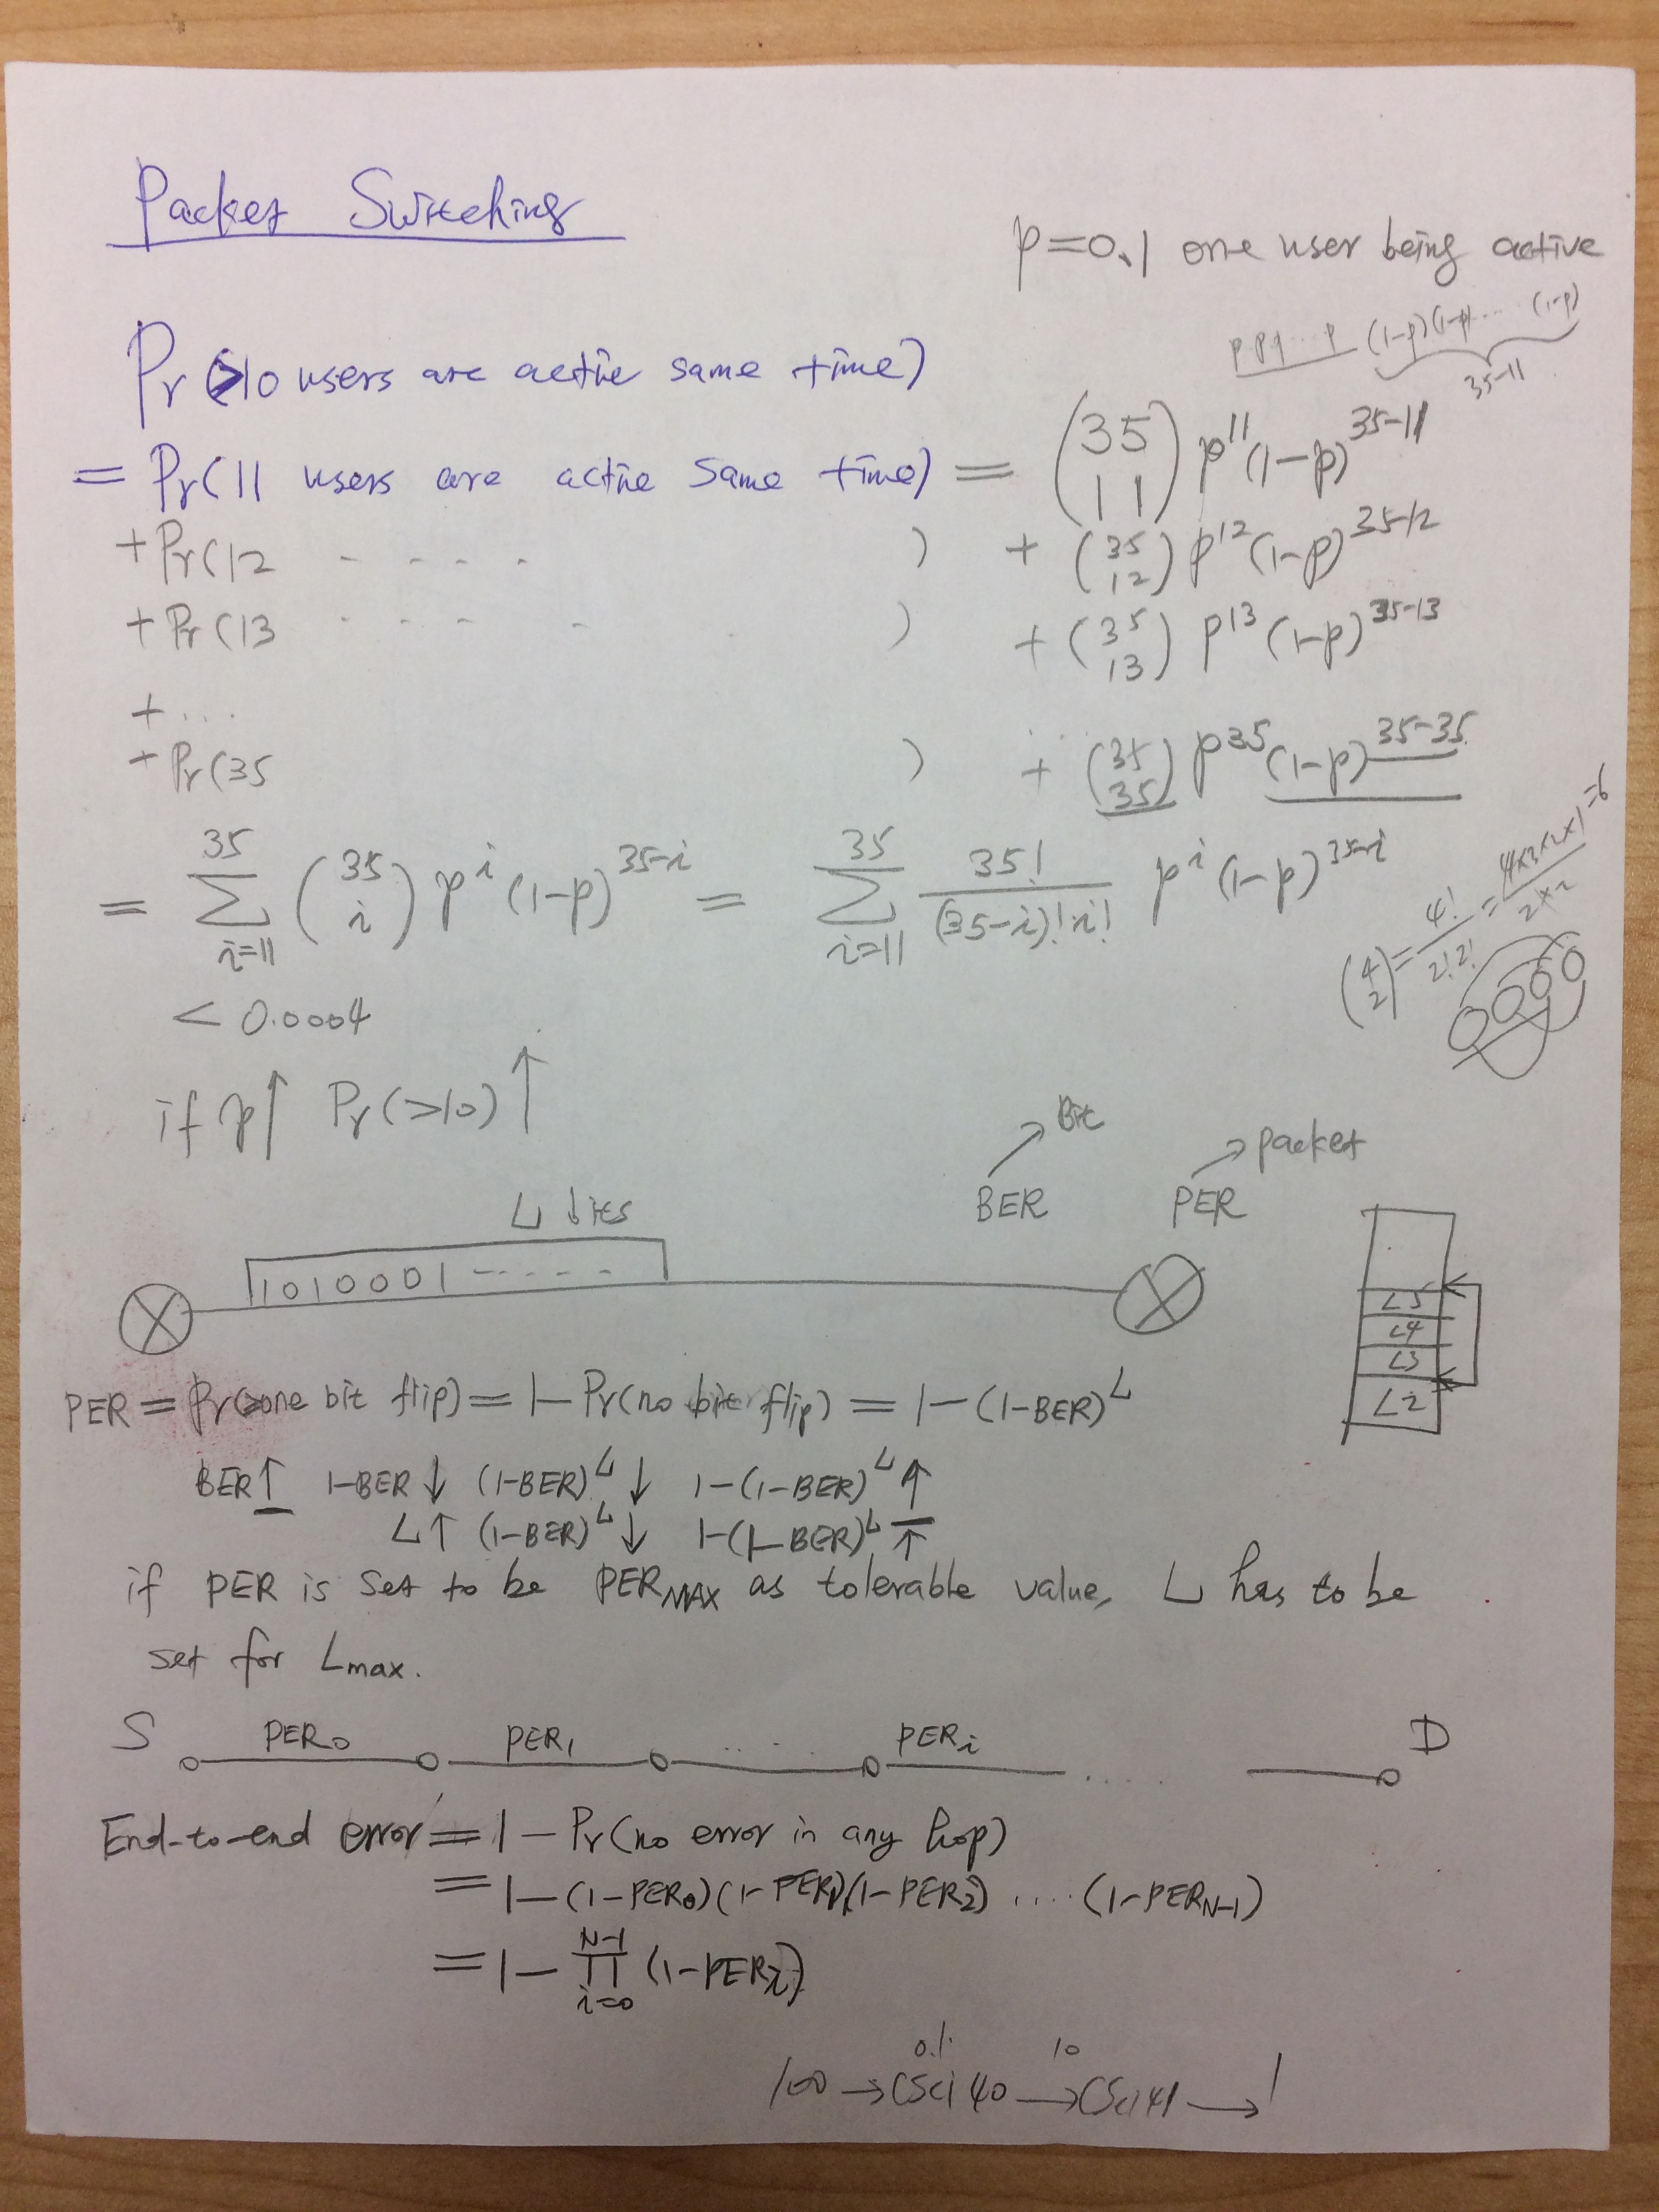 Packet Switching
p=0.1 one user being active
p p p ... p (1-p)(1-p) ... (1-p)
35-11
Pr(>10 users are active same time)
= Pr(11 users are active same time) = (35 11) p^11 (1-p)^35-11
+Pr(12 - - - - ) + (35 12) p^12 (1-p)^35-12
+Pr(13 - - - - ) + (35 13) p^13 (1-p)^35-13
+ ...
+Pr(35 ) + (35 35) p^35 (1-p)^35-35
= Σ_{i=11}^{35} (35 i) p^i (1-p)^35-i = Σ_{i=11}^{35} 35!/((35-i)! i!) p^i (1-p)^35-i
(4 2) = 4!/(2!2!) = 4×3×2×1/(2×2) = 6
< 0.0004
if p↑ Pr(>10)↑
Bit
packet
BER PER
L bits
1010001 - - - - -
L5
L4
L3
L2
PER = Pr(≥one bit flip) = 1-Pr(no bit flip) = 1-(1-BER)^L
BER↑ 1-BER↓ (1-BER)^L↓ 1-(1-BER)^L↑
L↑ (1-BER)^L↓ 1-(1-BER)^L↑
if PER is set to be PER_MAX as tolerable value, L has to be
set for L_max.
S PER_0 PER_1 ..... PER_i ..... D
End-to-end error = 1 - Pr(no error in any hop)
= 1-(1-PER_0)(1-PER_1)(1-PER_2) .... (1-PER_N-1)
= 1 - Π_{i=0}^{N-1} (1-PER_i)
0.1 10
100 → CSci 40 → CSci 41 → 1